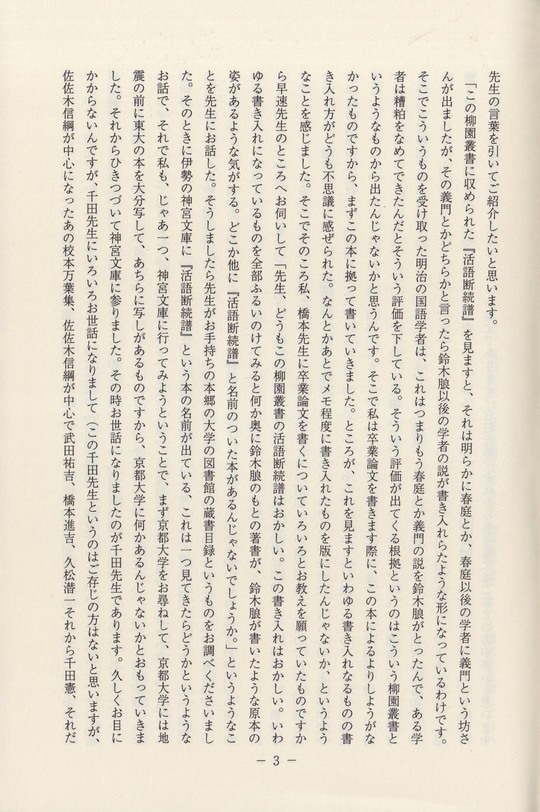 先生の言葉を引いてご紹介したいと思います。
「この柳園叢書に収められた『活語断続譜』を見ますと、それは明らかに春庭とか、春庭以後の学者に義門という坊さ
んが出ましたが、その義門とかどちらかと言ったら鈴木腺以後の学者の説が書き入れらたような形になっているわけです。
そこでこういうものを受け取った明治の国語学者は、これはつまりもう春庭とか義門の説を鈴木腺がとったんで、ある学
者は糟粕をなめてできたんだとそういう評価を下している。そういう評価が出てくる根拠というのはこういう柳園叢書と
いうようなものから出たんじゃないかと思うんです。そこで私は卒業論文を書きます際に、この本によるよりしようがな
かったものですから、まずこの本に拠って書いていきました。ところが、これを見ますといわゆる書き入れなるものの書
き入れ方がどうも不思議に感ぜられた。なんとかあとでメモ程度に書き入れたものを版にしたんじゃないか、というよう
なことを感じました。そこでそのころ私、橋本先生に卒業論文を書くについていろいろとお教えを願っていたものですか
ら早速先生のところへお伺いして「先生、どうもこの柳園叢書の活語断続譜はおかしい。この書き入れはおかしい。いわ
ゆる書き入れになっているものを全部ふるいのけてみると何か奥に鈴木腺のもとの著書が、鈴木腺が書いたような原本の
姿があるような気がする。どこか他に『活語断続譜』と名前のついた本があるんじゃないでしょうか。」というようなこ
とを先生にお話した。そうしましたら先生がお手持ちの本郷の大学の図書館の蔵書目録というものをお調べくださいまし
た。そのときに伊勢の神宮文庫に『活語断続譜』という本の名前が出ている、これは一つ見てきたらどうかというような
お話で、それで私も、じゃあ一つ、神宮文庫に行ってみようということで、まず京都大学をお尋ねして、京都大学には地
震の前に東大の本を大分写して、あちらに写しがあるものですから、京都大学に何かあるんじゃないかとおもっていきま
した。それからひきつづいて神宮文庫に参りました。その時お世話になりましたのが千田先生であります。久しくお目に
かからないんですが、千田先生にいろいろお世話になりまして（この千田先生というのはご存じの方はないと思いますが、
佐佐木信綱が中心になったあの校本万葉集、佐佐木信綱が中心で武田祐吉、橋本進吉、久松潜一それから千田憲、それだ
— 3 —